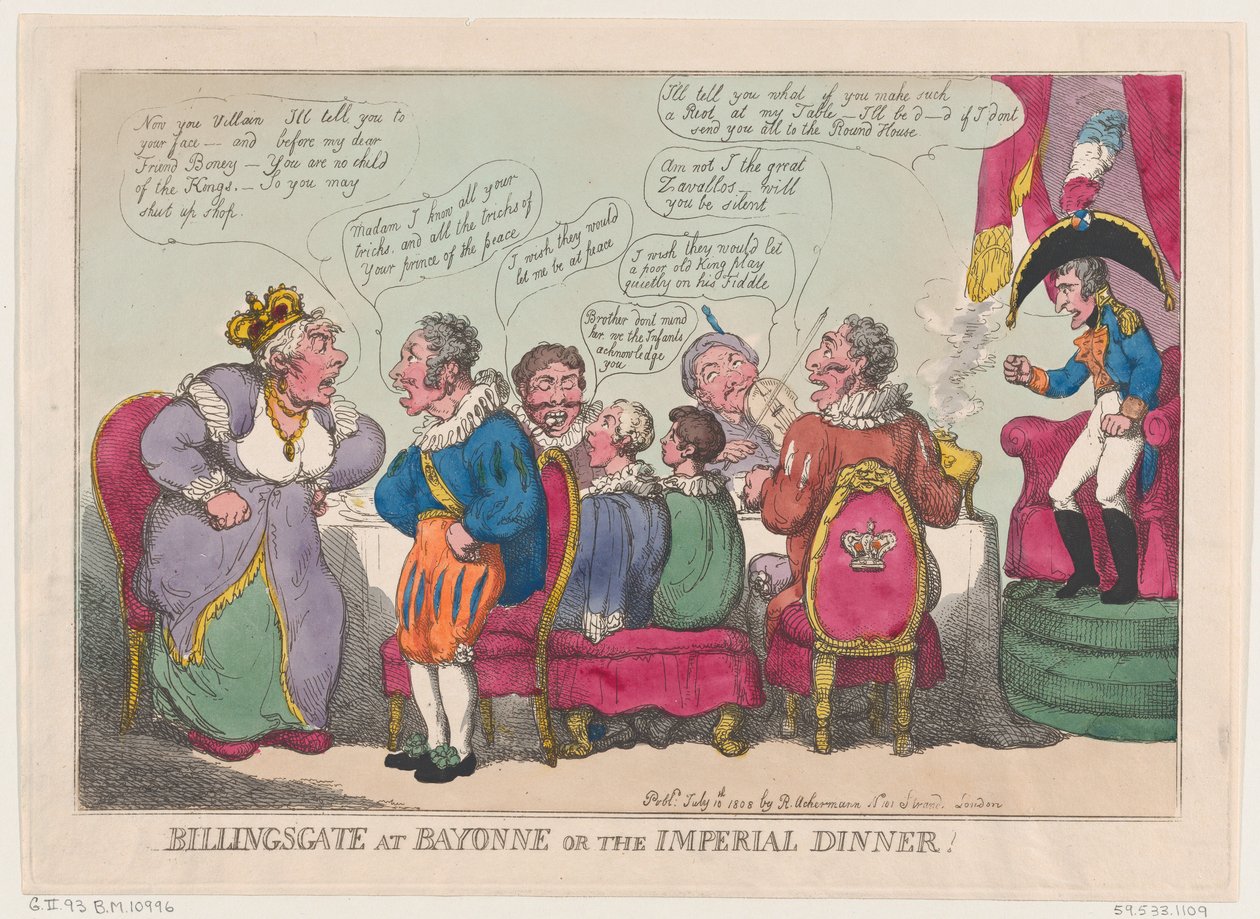 Now you Villain I'll tell you to
your face — and before my dear
Friend Boney — You are no child
of the Kings. — So you may
shut up shop.
Madam I know all your
tricks, and all the tricks of
Your prince of the peace
I wish they would
let me be at peace
Brother dont mind
her, we the Infants
acknowledge
you
I wish they would let
a poor old King play
quietly on his Fiddle
Am not I the great
Zavallos — will
you be silent
I'll tell you what if you make such
a Riot at my Table — I'll be d—d if I dont
send you all to the Round House.
Publd. July 10th 1808 by R. Ackermann No 101 Strand, London
BILLINGSGATE AT BAYONNE OR THE IMPERIAL DINNER!
G.II.93 B.M.10996
59.533.1109